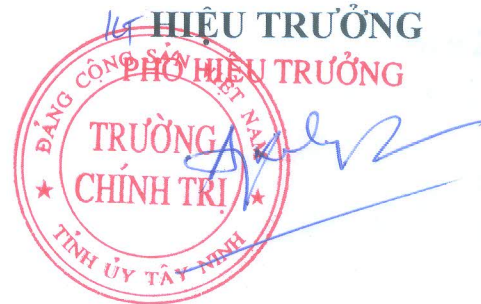 KT HIỆU TRƯỞNG
PHÓ HIỆU TRƯỞNG
ĐẢNG CỘNG SẢN VIỆT NAM
TRƯỜNG
CHÍNH TRỊ
TỈNH ỦY TÂY NINH